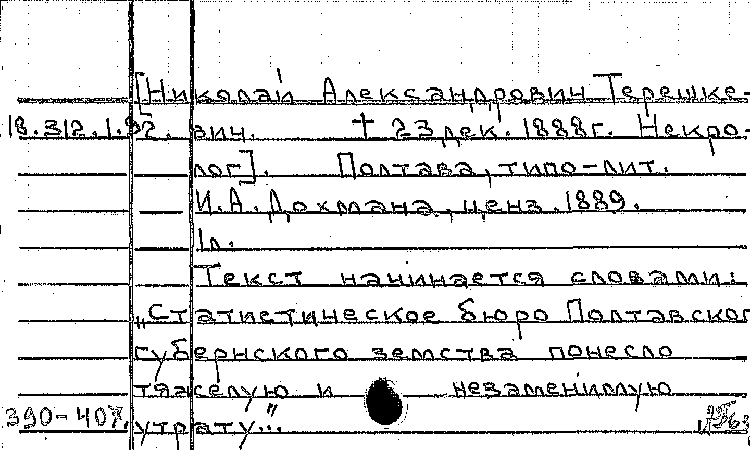 [Николай Александрович Терешке-
18.312.1.92. вич. † 23 дек. 1888 г. Некро-
лог]. Полтава, типо-лит.
И.А. Дохмана, ценз. 1889.
1л.
Текст начинается словами:
„Статистическое бюро Полтавског
губернского земства понесло
тяжелую и незаменимую
390-407. утрату..."